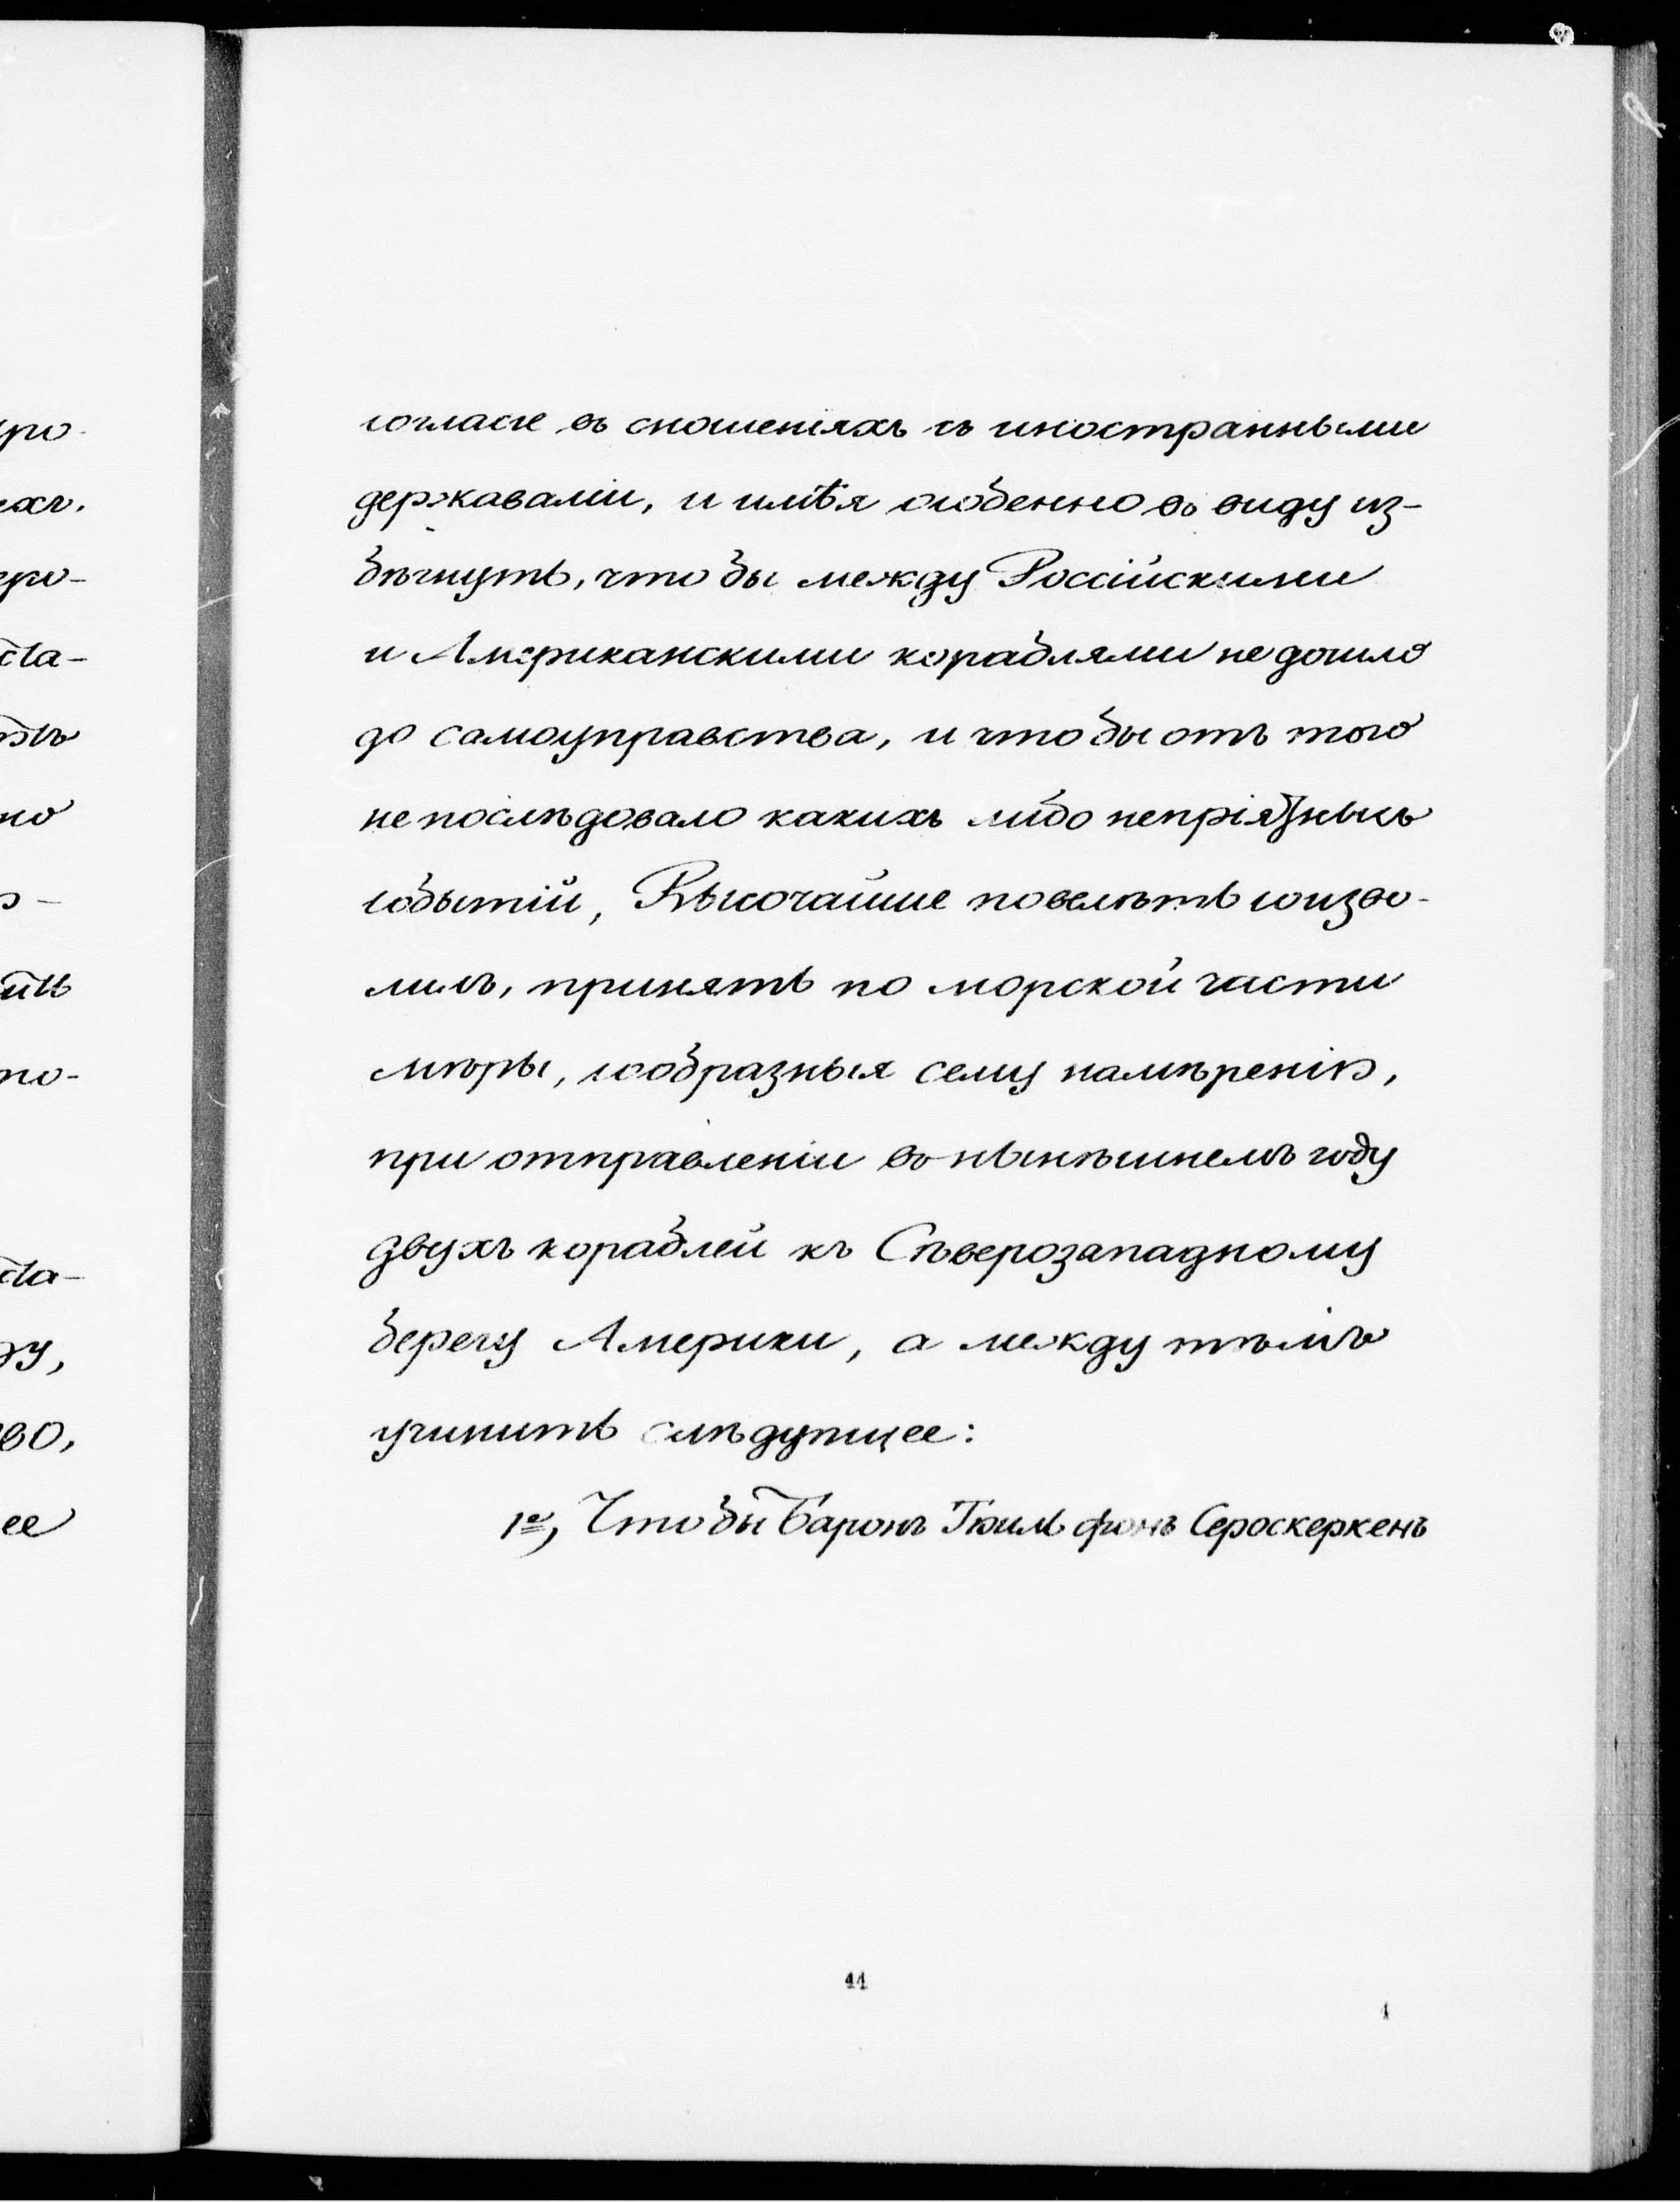 согласіе въ сношеніяхъ съ иностранными
державами, и имѣя особенно въ виду из-
бѣгнуть, что бы между Россійскими
и Американскими кораблями не дошло
до самоуправства, и что бы отъ того
не послѣдовало какихъ либо непріятныхъ
событій, Высочайше повелѣть соизво-
лилъ, принять по морской части
мѣры, сообразныя сему намѣренію,
при отправленіи въ нынѣшнемъ году
двухъ кораблей къ Сѣверозападному
берегу Америки, а между тѣмъ
учинить слѣдующее:
1е, Что бы Баронъ Тюиль фонъ Сероскеркенъ
44